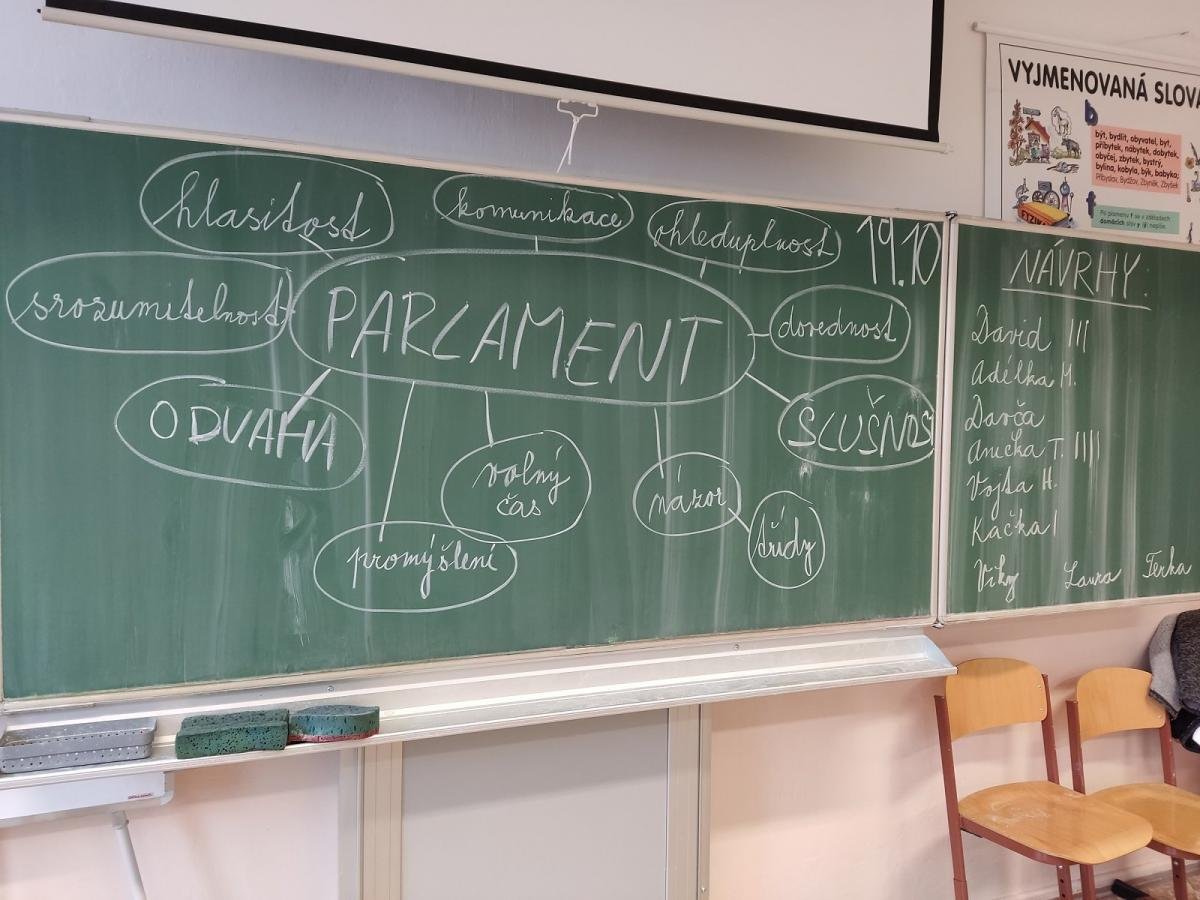 hlasitost
komunikace
ohleduplnost
19.10
srozumitelnost
PARLAMENT
dovednost
ODVAHA
SLUŠNOST
volný
čas
názor
třídy
promýšlení
NÁVRHY:
David III
Adélka M.
Darča
Anička T. IIII
Vojta H.
Kačka I
Viky Laura Terka
VYJMENOVANÁ SLOVA
b
být, bydlit, obyvatel, byt,
příbytek, nábytek, dobytek,
obyčej, zbytek, bystrý,
bylina, kobyla, býk, babyka;
Přibyslav, Bydžov, Zbyněk, Zbyšek
Po písmenu f se v základech
domácích slov y (ý) nepíše.